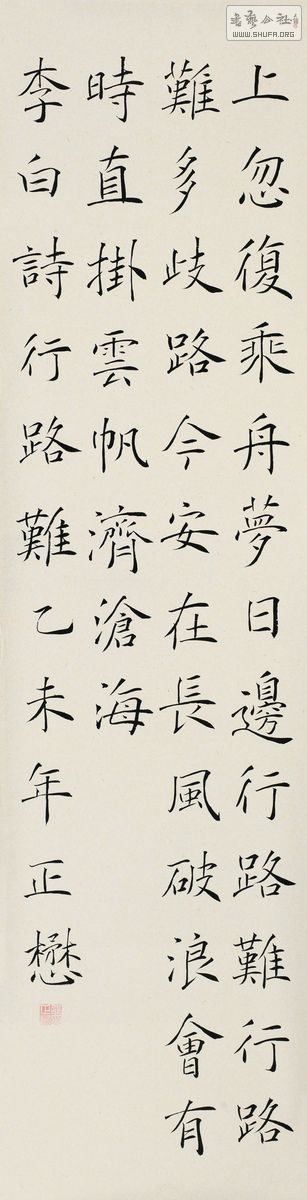 上忽復乘舟夢日邊行路難行路
難多歧路今安在長風破浪會有
時直掛雲帆濟滄海
李白詩行路難乙未年正懋
書藝公社
WWW.SHUFA.ORG